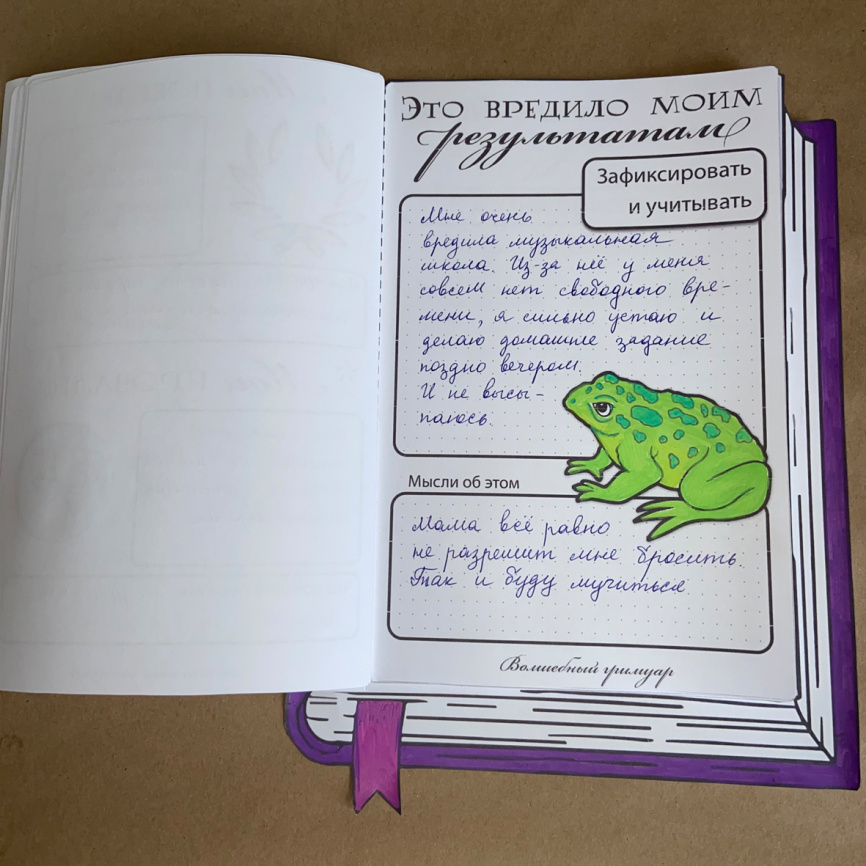 Это вредило моим
результатам
Зафиксировать
и учитывать
Мне очень
вредила музыкальная
школа. Из-за неё у меня
совсем нет свободного вре-
мени, я сильно устаю и
делаю домашние задание
поздно вечером.
И не высы-
паюсь.
Мысли об этом
Мама всё равно
не разрешит мне бросить.
Так и буду мучиться
Волшебный гримуар